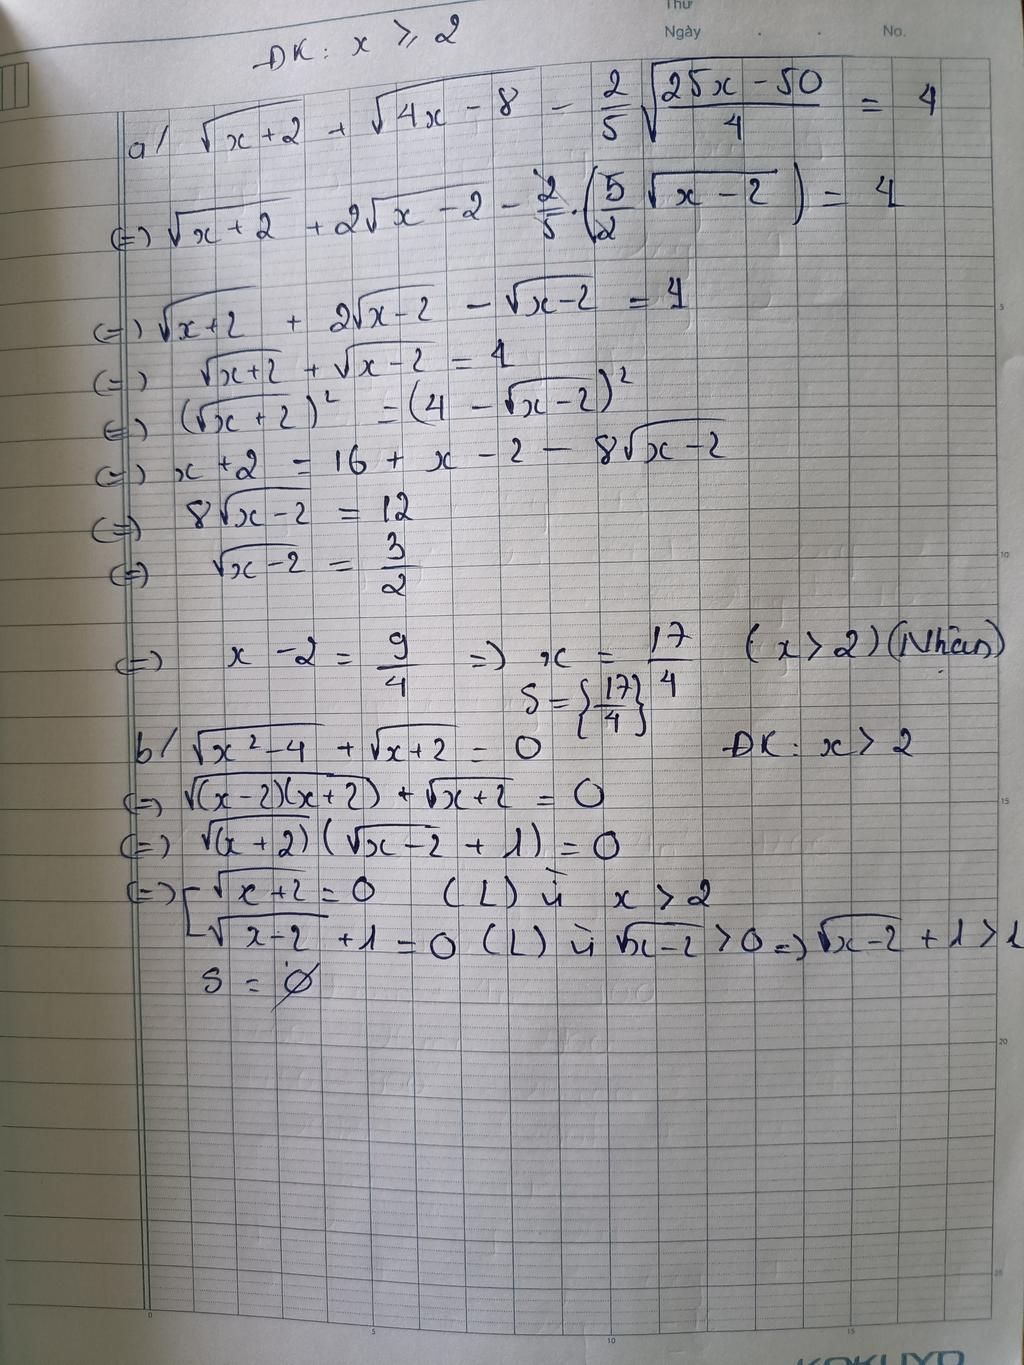 Thứ
Ngày . . No.
ĐK: x ≥ 2
a/ √(x+2) + √(4x-8) - 2/5 √((25x-50)/4) = 4
(=) √(x+2) + 2√(x-2) - 2/5 · (5/2 √(x-2)) = 4
(=) √(x+2) + 2√(x-2) - √(x-2) = 4
(=) √(x+2) + √(x-2) = 4
(=) (√(x+2))² = (4 - √(x-2))²
(=) x+2 = 16 + x - 2 - 8√(x-2)
(=) 8√(x-2) = 12
(=) √(x-2) = 3/2
(=) x - 2 = 9/4 =) x = 17/4 (x > 2) (Nhận)
S = {17/4}
b/ √(x²-4) + √(x+2) = 0 ĐK: x > 2
(=) √((x-2)(x+2)) + √(x+2) = 0
(=) √(x+2) (√(x-2) + 1) = 0
(=) [ √(x+2) = 0 (L) vì x > 2
√(x-2) + 1 = 0 (L) vì √(x-2) > 0 =) √(x-2) + 1 > 1
S = ∅
5
10
15
20
25
0 5 10 15
KOKUYO